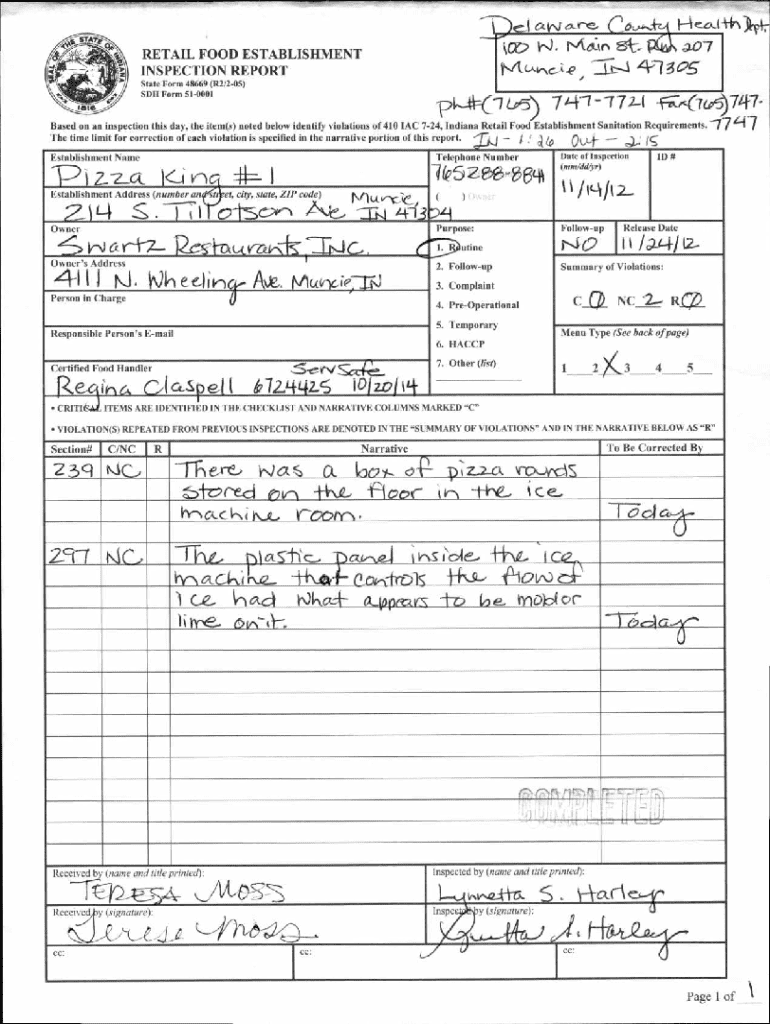 Delaware County Health Dpt.
100 W. Main St. Rm 207
Muncie, IN 47305
ph#(765) 747-7721 Fax(765)747-
7747
SEAL OF THE STATE OF INDIANA
1816
RETAIL FOOD ESTABLISHMENT
INSPECTION REPORT
State Form 48669 (R2/2-05)
SDH Form 51-0001
Based on an inspection this day, the item(s) noted below identify violations of 410 IAC 7-24, Indiana Retail Food Establishment Sanitation Requirements.
The time limit for correction of each violation is specified in the narrative portion of this report.
IN - 1:26 Out - 2:15
Establishment Name
Pizza King #1
Telephone Number
765288-8841
Date of Inspection
(mm/dd/yr)
11/14/12
ID #
Establishment Address (number and street, city, state, ZIP code)
214 S. Tillotson Ave Muncie, IN 47304
( ) Owner
Owner
Swartz Restaurants, INC.
Purpose:
1. Routine
2. Follow-up
3. Complaint
4. Pre-Operational
5. Temporary
6. HACCP
7. Other (list)
Follow-up
NO
Release Date
11/24/12
Owner's Address
4111 N. Wheeling Ave. Muncie, IN
Summary of Violations:
C 0 NC 2 R 0
Person in Charge
Responsible Person's E-mail
Menu Type (See back of page)
1 2 X 3 4 5
Certified Food Handler
ServSafe
Regina Claspell 6724425 10/20/14
• CRITICAL ITEMS ARE IDENTIFIED IN THE CHECKLIST AND NARRATIVE COLUMNS MARKED "C"
• VIOLATION(S) REPEATED FROM PREVIOUS INSPECTIONS ARE DENOTED IN THE "SUMMARY OF VIOLATIONS" AND IN THE NARRATIVE BELOW AS "R"
Section# C/NC R Narrative To Be Corrected By
239 NC There was a box of pizza rounds
stored on the floor in the ice
machine room. Today
297 NC The plastic panel inside the ice
machine that controls the flow of
ice had what appears to be mold or
lime on it. Today
COMPLETED
Received by (name and title printed):
TERESA MOSS
Inspected by (name and title printed):
Lynnetta S. Harley
Received by (signature):
Terese Moss
Inspected by (signature):
S. Harley
cc: cc: cc:
Page 1 of 1